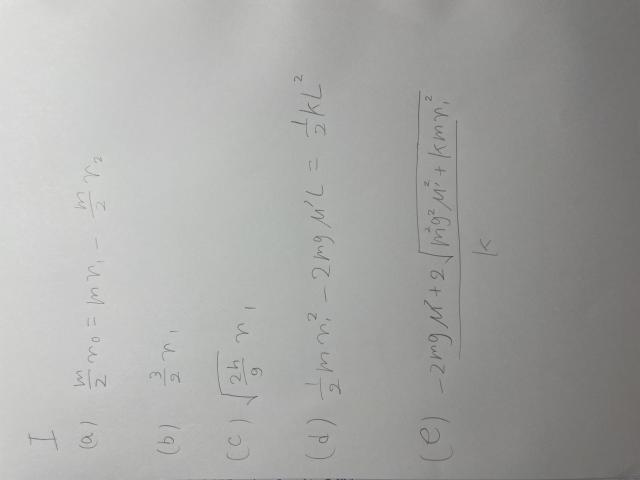 I
(a) m/2 v₀ = mv₁ - m/2 v₂
(b) 3/2 v₁
(c) √(2h/g) v₁
(d) 1/2 mv₁² - 2mgμ'L = 1/2 kL²
(e) (-2mgμ' + 2√(m²g²μ'² + kmv₁²))/k